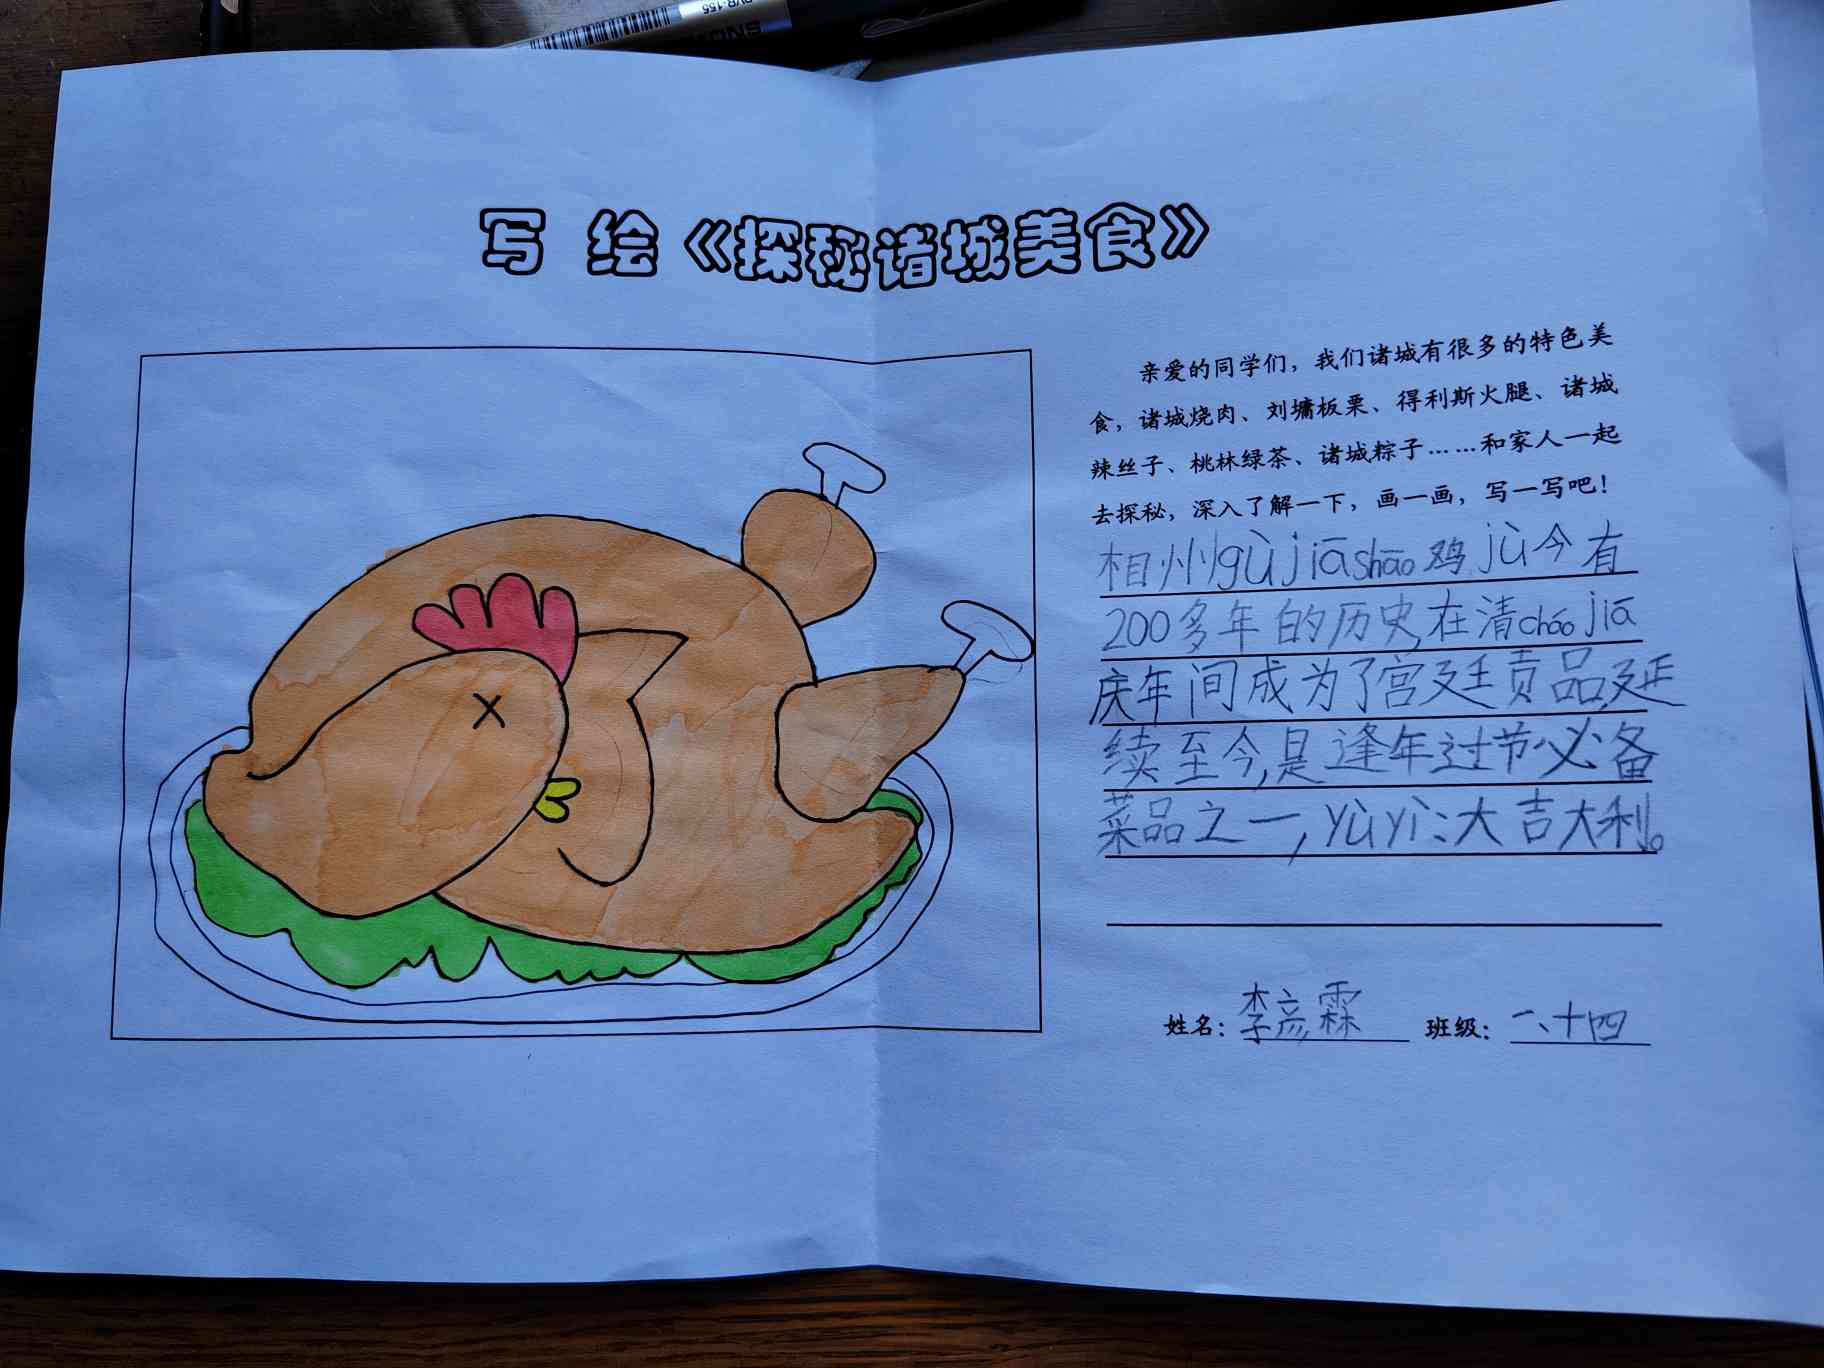 PVR-155
写 绘《探秘诸城美食》
亲爱的同学们，我们诸城有很多的特色美
食，诸城烧肉、刘墉板栗、得利斯火腿、诸城
辣丝子、桃林绿茶、诸城粽子……和家人一起
去探秘，深入了解一下，画一画，写一写吧！
相州gù jiā shāo 鸡 jù 今有
200多年的历史,在清 cháo jiā
庆年间成为了宫廷贡品,延
续至今,是逢年过节必备
菜品之一,yù yì:大吉大利。
姓名：李彦霖 班级：一、十四